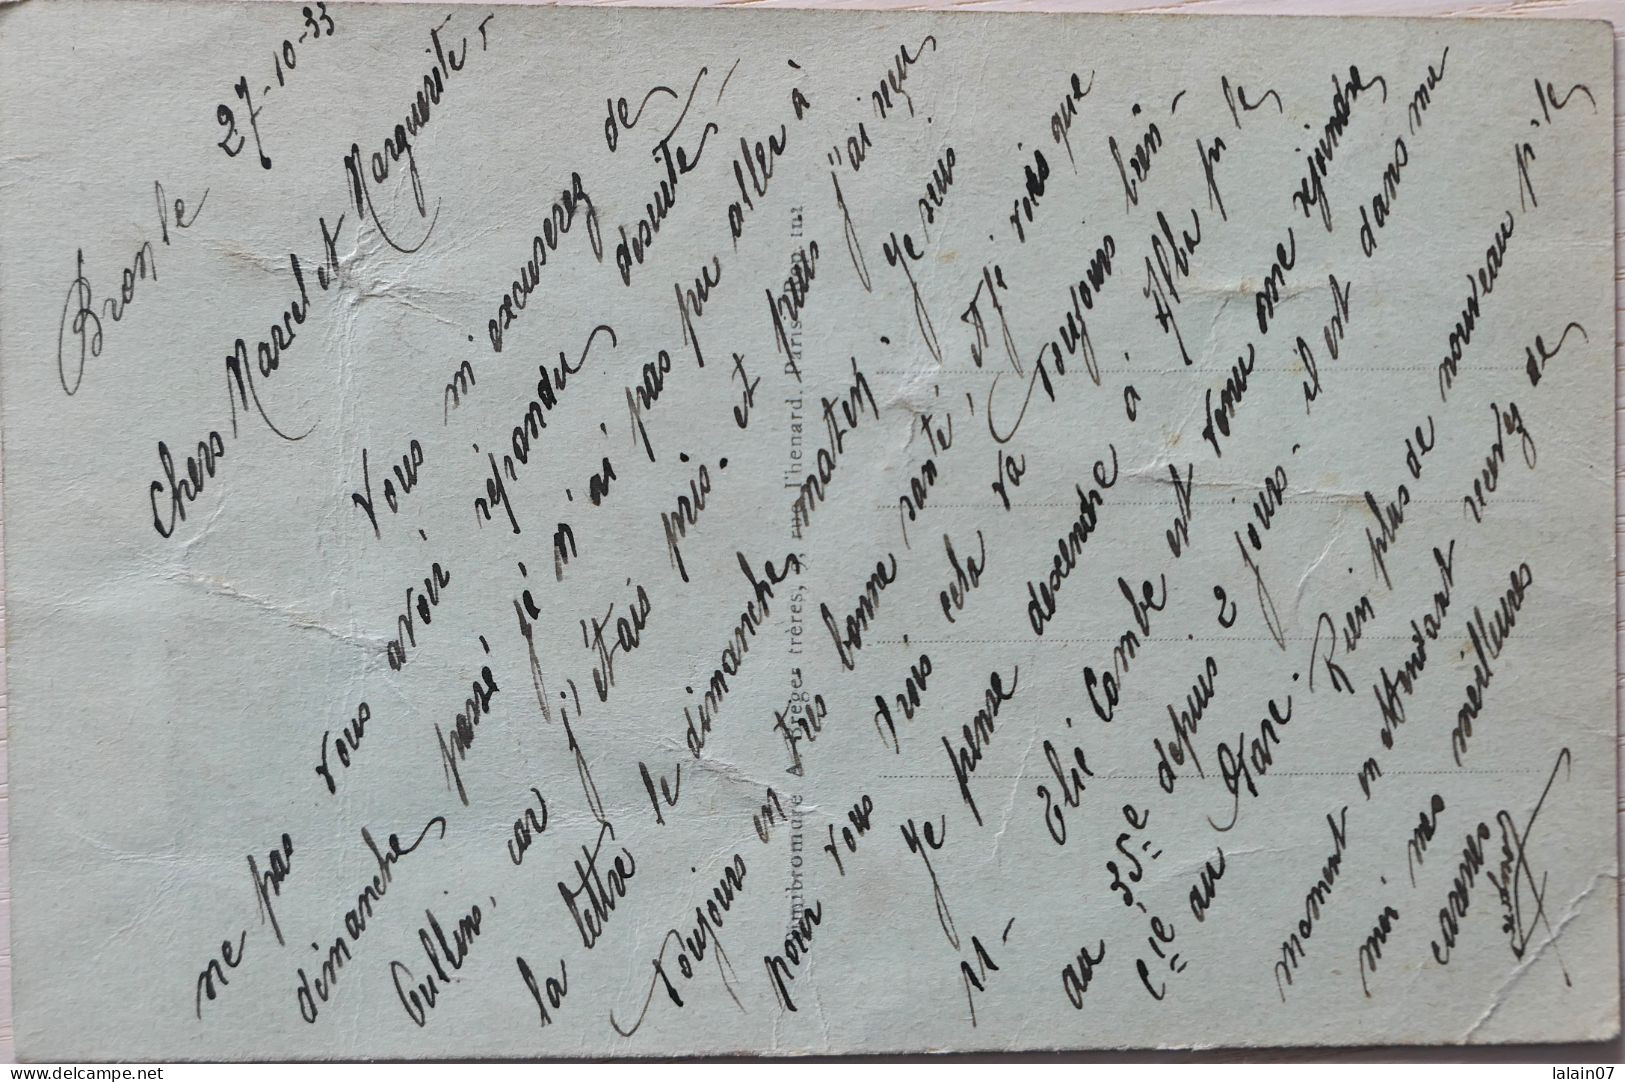 Bron le 27-10-33
Chers Marcel et Marguerite -
Vous m'excuserez de
ne pas vous avoir répondu desuite -
dimanche passé je n'ai pas pu aller à
Oullins. car j'étais pris. et puis j'ai reçu
la lettre le dimanche matin. Je suis
toujours en très bonne santé. et je vois que
pour vous trois cela va toujours bien -
Je pense descendre à Alba pr le
11 - Elie Combe est venu me rejoindre
au 35e depuis 2 jours. il est dans ma
Cie au Rien plus de nouveau pr le
moment en attendant recevez de
moi mes meilleures
caresses
A. Breger frères, 9, rue Thenard. Paris
lalain07
delcampe.net